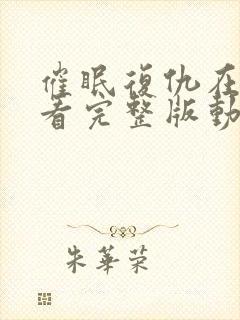 催眠復仇在
看完整版動
朱華荣